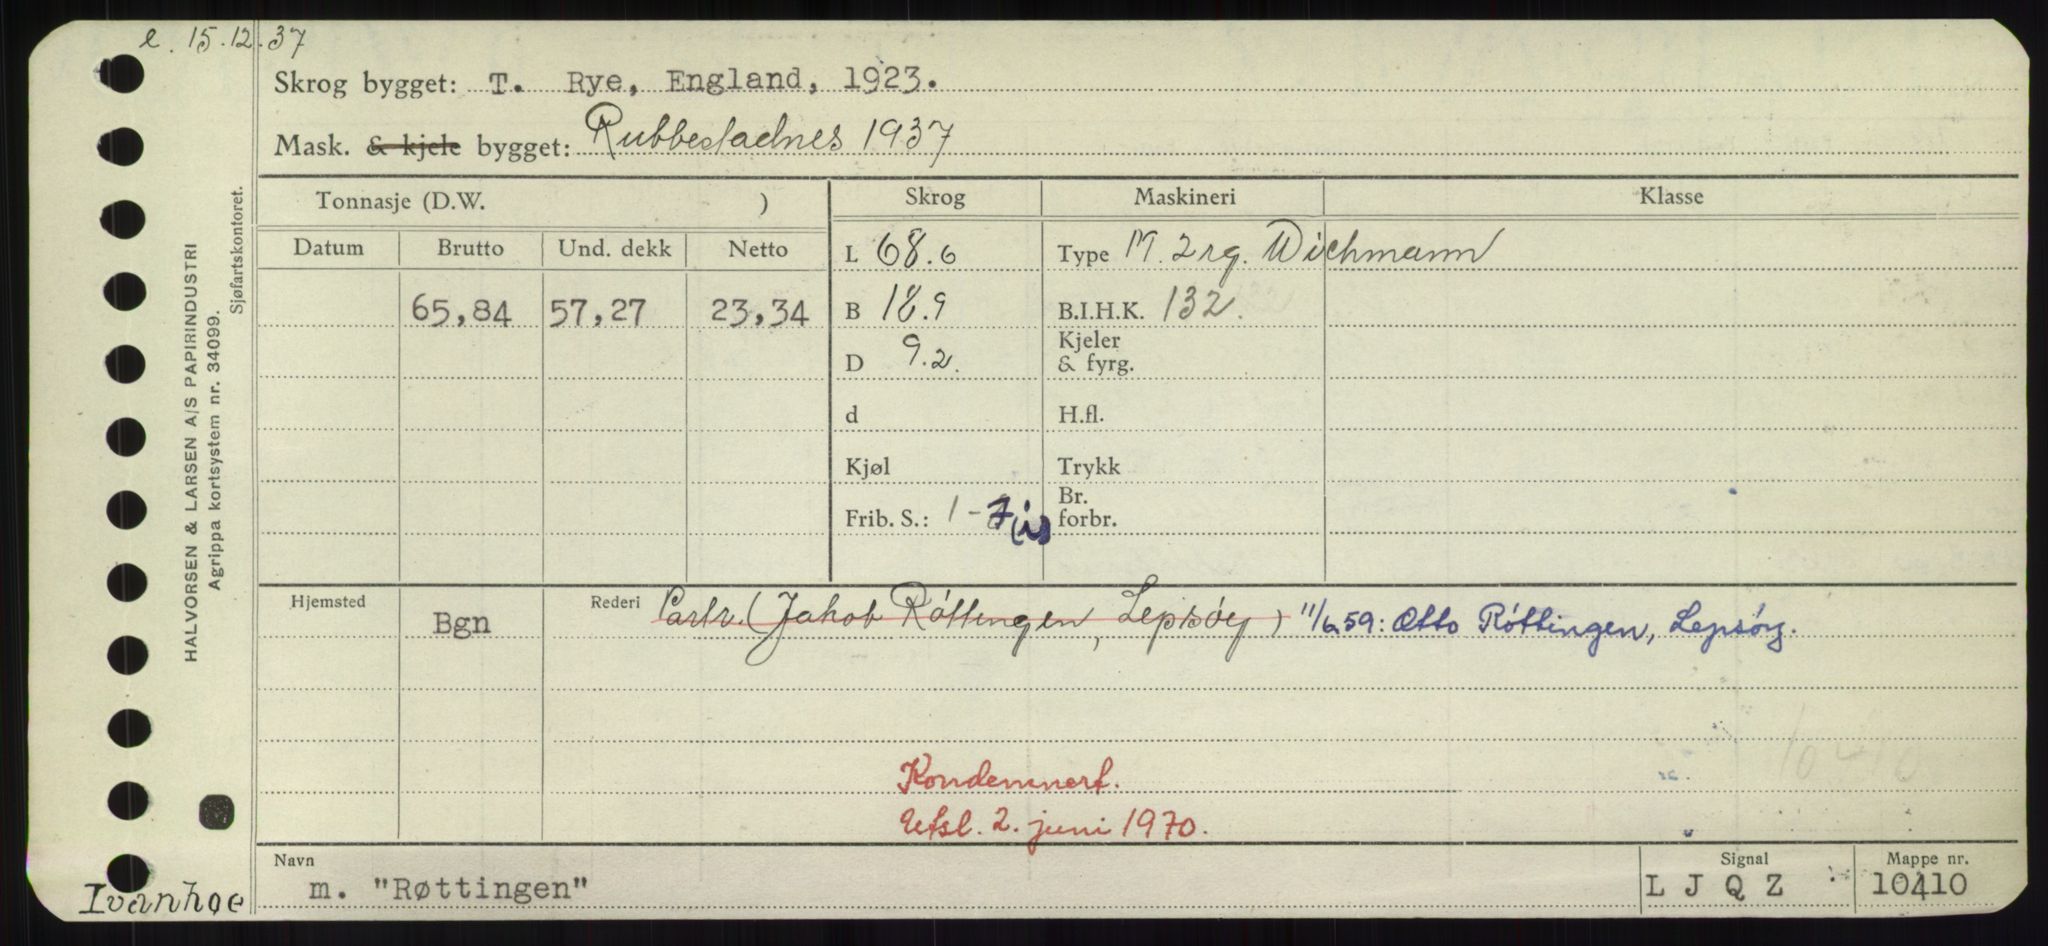 e. 15.12.37
Skrog bygget: T. Rye, England, 1923.
Mask. & kjele bygget: Rubbestadnes 1937
Tonnasje (D.W. )
Skrog Maskineri Klasse
Datum Brutto Und. dekk Netto
L 68.6 Type M. 2 rg. Wichmann
65,84 57,27 23,34
B 18.9 B.I.H.K. 132.
D 9.2. Kjeler & fyrg.
d H.fl.
Kjøl Trykk
Frib. S.: 1-7 (is) Br. forbr.
Hjemsted Bgn Rederi Partr. (Jakob Röttingen, Lepsöy) 11/6.59: Otto Röttingen, Lepsöy.
10410
Kondemnert.
Utsl. 2. juni 1970.
Navn Signal Mappe nr.
m. "Røttingen" L J Q Z 10410
Ivanhoe
HALVORSEN & LARSEN A/S PAPIRINDUSTRI
Agrippa kortsystem nr. 34099.
Sjøfartskontoret.